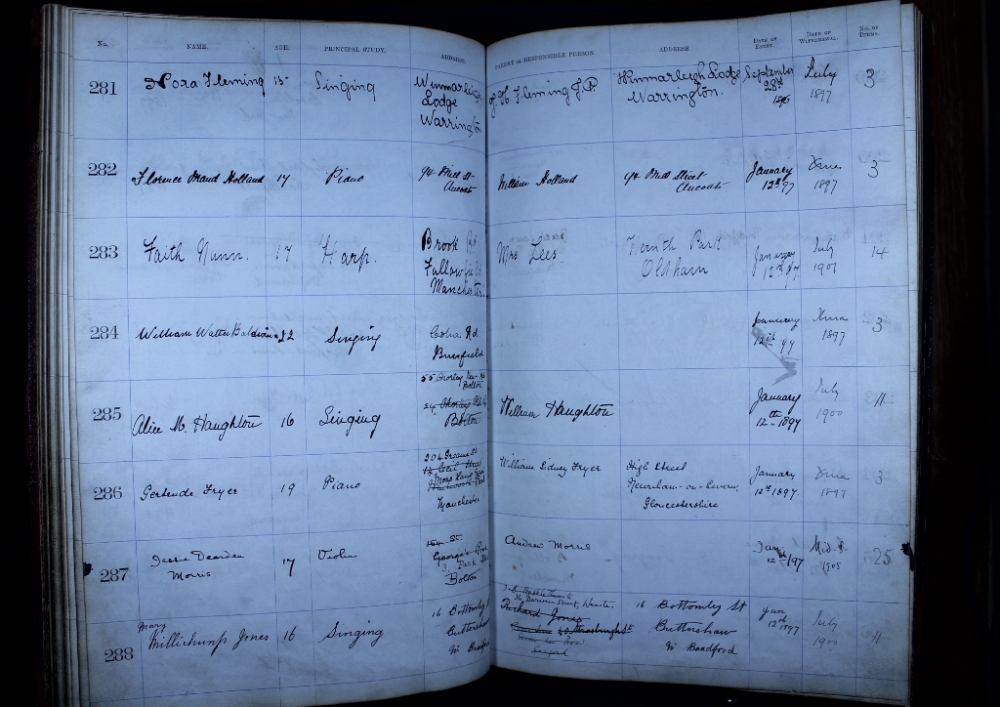 No. NAME. AGE. PRINCIPAL STUDY. ADDRESS. PARENT OR RESPONSIBLE PERSON. ADDRESS. DATE OF ENTRY. DATE OF WITHDRAWAL. NO. OF TERMS.
281 Nora Fleming 15 Singing Winmarleigh Lodge Warrington Fleming J.P. Winmarleigh Lodge Warrington. September 28th 1896 July 1897 3
282 Florence Maud Holland 17 Piano 94 Mill St Ancoats William Holland 94 Mill Street Ancoats January 12th 97 Xmas 1897 3
283 Faith Nunn. 17 Harp. Brook Rd Fallowfield Manchester Mrs Lees Werneth Park Oldham January 12th 97 July 1901 14
284 William Walter Baldwin 22 Singing Rd January 12th 97 Xmas 1897 3
285 Alice M. Haughton 16 Singing 55 Chorley New Rd Bolton 24 Bolton William Haughton January 12th 1897 July 1900 11
286 Gertrude Fryer 19 Piano Manchester William Sidney Fryer High Street Newnham-on-Severn, Gloucestershire January 12th 1897. Xmas 1897 3
287 Jessie Dearden Morris 17 Violin St. George's Bolton Andrew Morris Jany 12th /97 1905 25
288 Mary Millichamp Jones 16 Singing 16 Bottomley St Buttershaw Nr Bradford Richard Jones 16 Bottomley St Buttershaw Nr Bradford Jan 12th 1897 July 1900 11